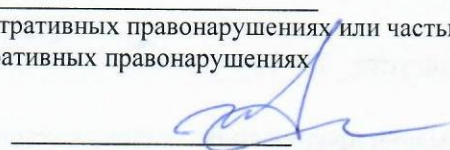 тративных правонарушениях или часты
ративных правонарушениях